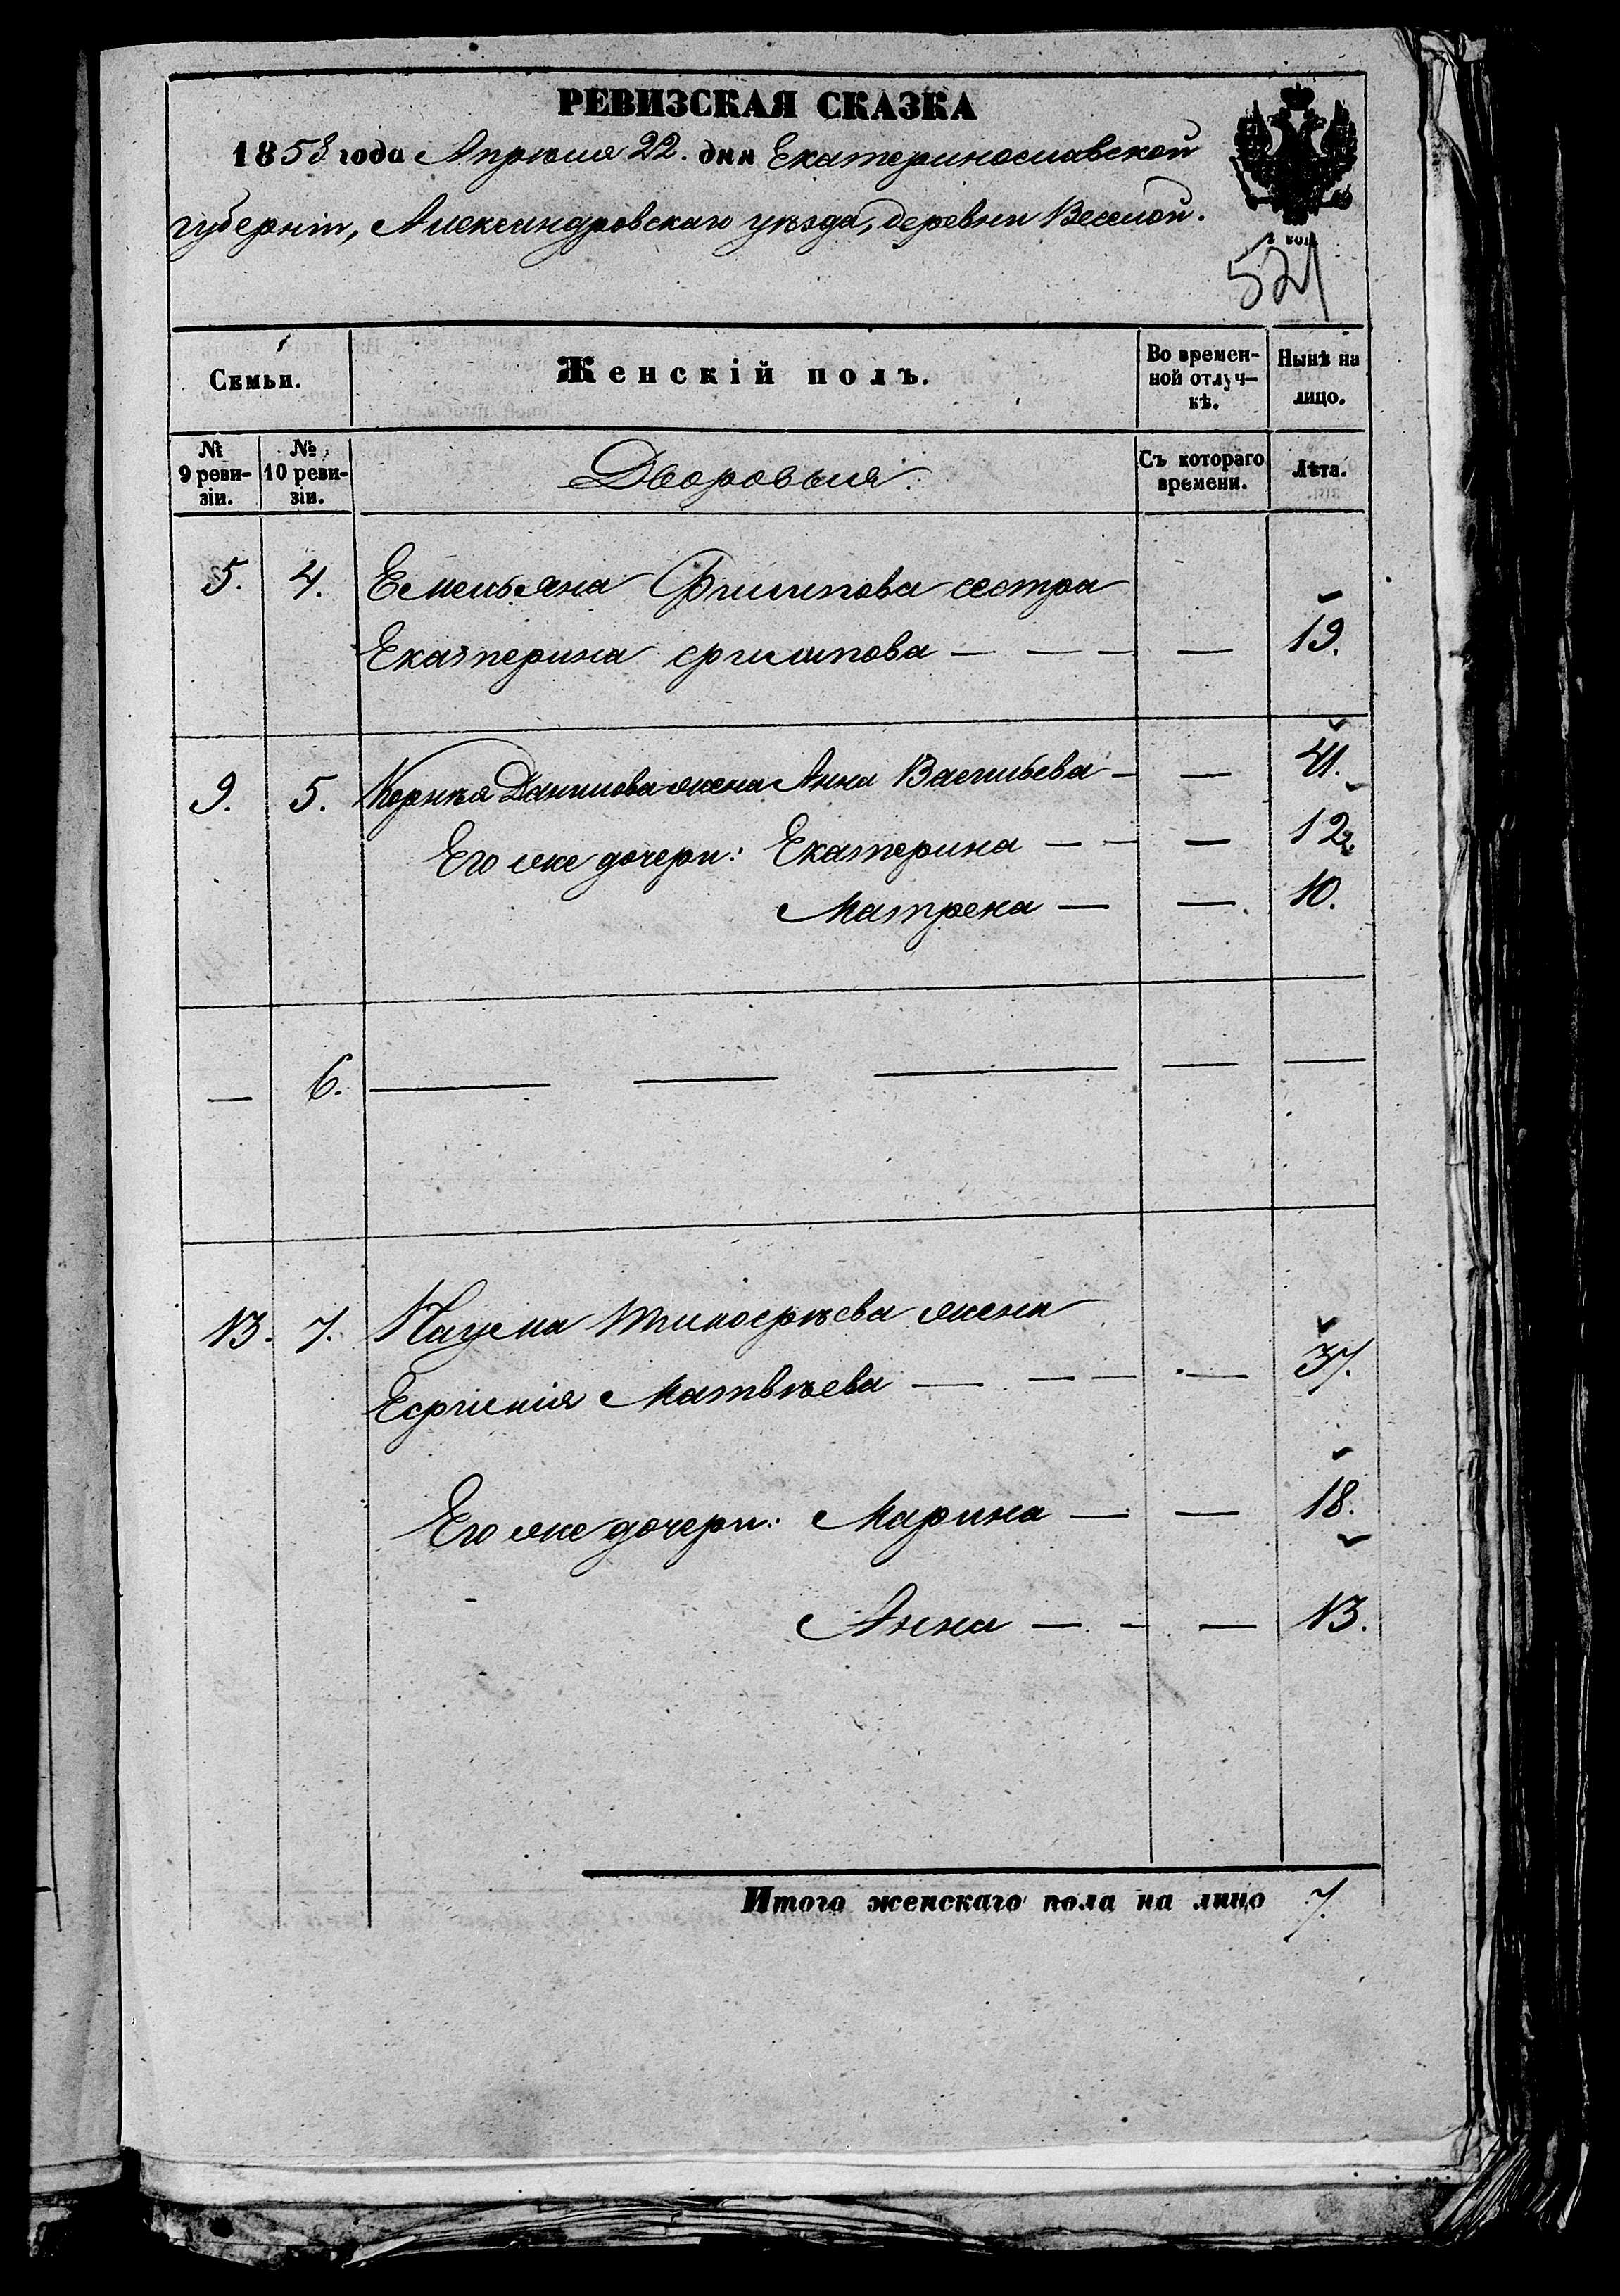 РЕВИЗСКАЯ СКАЗКА
1858 года Апрѣля 22. дня Екатеринославской
губерніи, Александровскаго уѣзда, деревни Веселой.
521
Семьи.
Женскій полъ.
Во времен-
ной отлуч-
кѣ.
Нынѣ на
лицо.
№
9 реви-
зіи.
№
10 реви-
зіи.
Дворовыя.
Съ котораго
времени.
Лѣта.
5. 4. Емельяна Филипова сестра
Екатерина Филипова — — — — 19.
9. 5. Корнѣя Данилова жена Анна Васильева — — 41.
Его же дочери: Екатерина — — — 12.
Матрена — — 10.
— 6. — — — — —
13. 7. Наума Тимофѣева жена
Ефимія Матвѣева — — — — 37.
Его же дочери: Марина — — 18.
Анна — — — 13.
Итого женскаго пола на лицо 7.